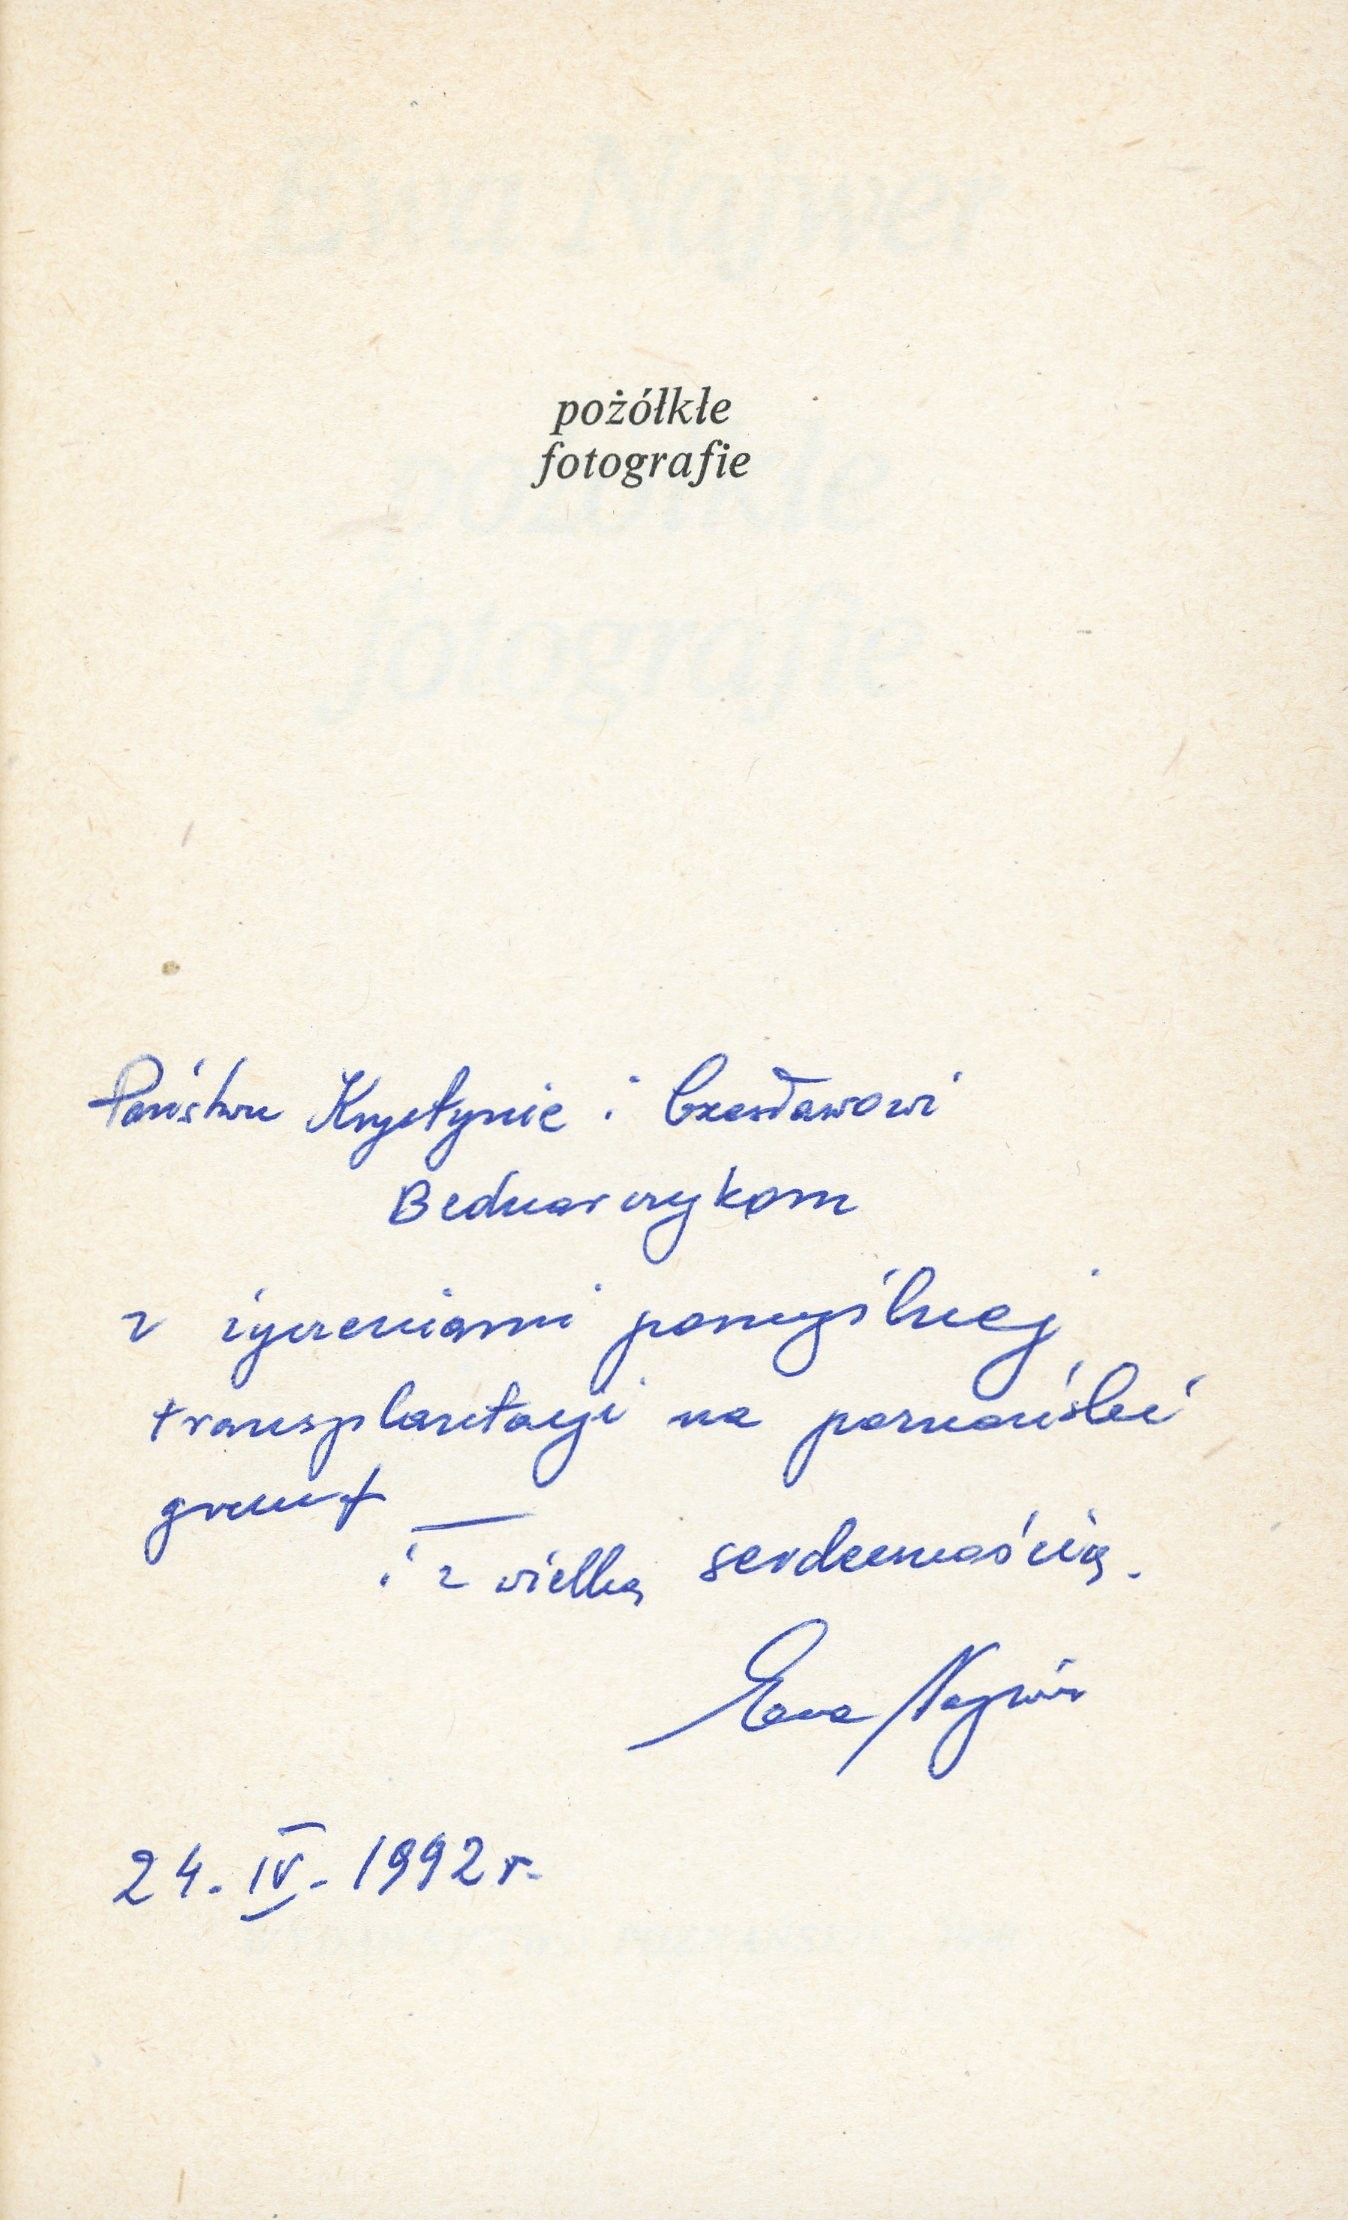 Ewa Najwer
pożółkłe
fotografie
pożółkłe
fotografie
Państwu Krystynie i Czesławowi
Bednarczykom
z życzeniami pomyślnej
transplantacji na poznański
grunt —
i z wielką serdecznością.
Ewa Najwer
24. IV. 1992 r.